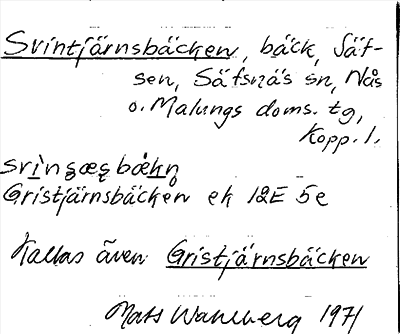 Svintjärnsbäcken, bäck, Säf-
sen, Säfsnäs sn, Nås
o. Malungs doms. tg,
Kopp. l.
Gristjärnsbäcken ek 12E 5e
Kallas även Gristjärnsbäcken
Mats Wahlberg 1971